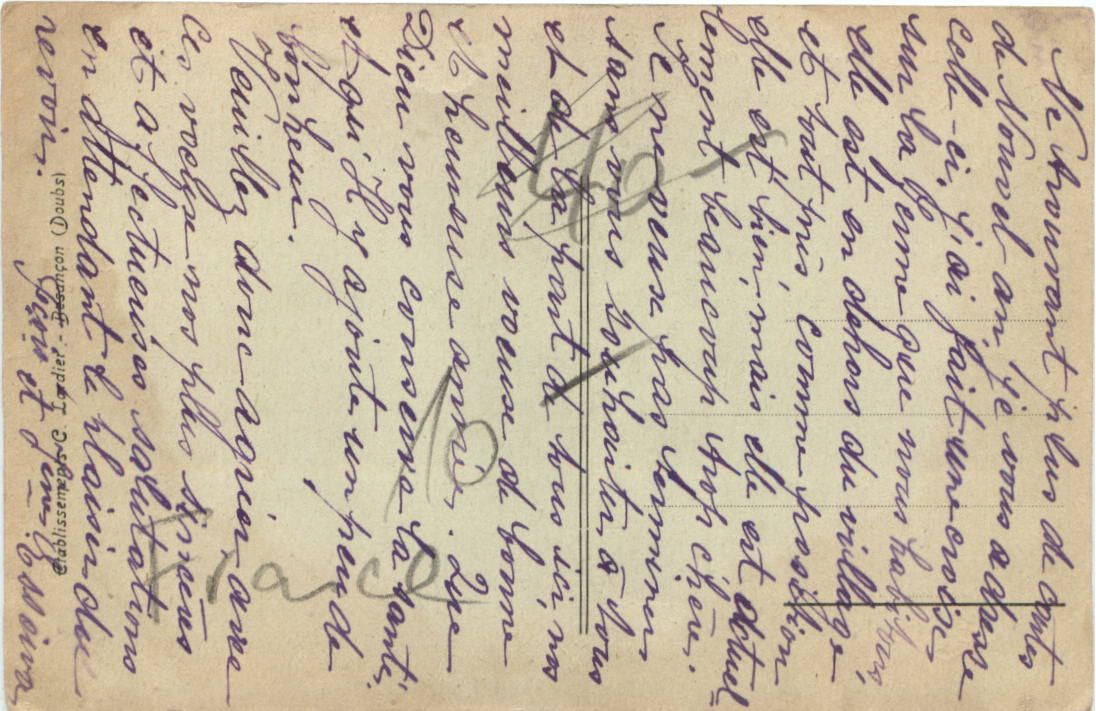 Ne trouvant plus de cartes
de Nouvel-an, je vous adresse
celle-ci, j'ai fait une croix
sur la ferme que nous habitons,
elle est en dehors du village
et tout près, comme position
elle est bien, mais elle est actuel-
lement beaucoup trop chère.
Je ne veux pas terminer
sans vous souhaiter à tous
et de la part de tous ici, nos
meilleurs voeux de bonne
et heureuse année. Que
Dieu vous conserve la santé,
et qu'Il y ajoute un peu de
bonheur.
Veuillez donc agréer, avec
ces voeux nos plus sincères
et affectueuses salutations
en attendant le plaisir du
revoir.
Établissements C. Lardier - Besançon (Doubs)
40-
10
France